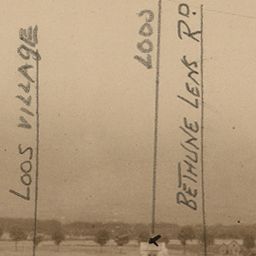 LOOS VILLAGE
LOOS
BETHUNE LENS RD